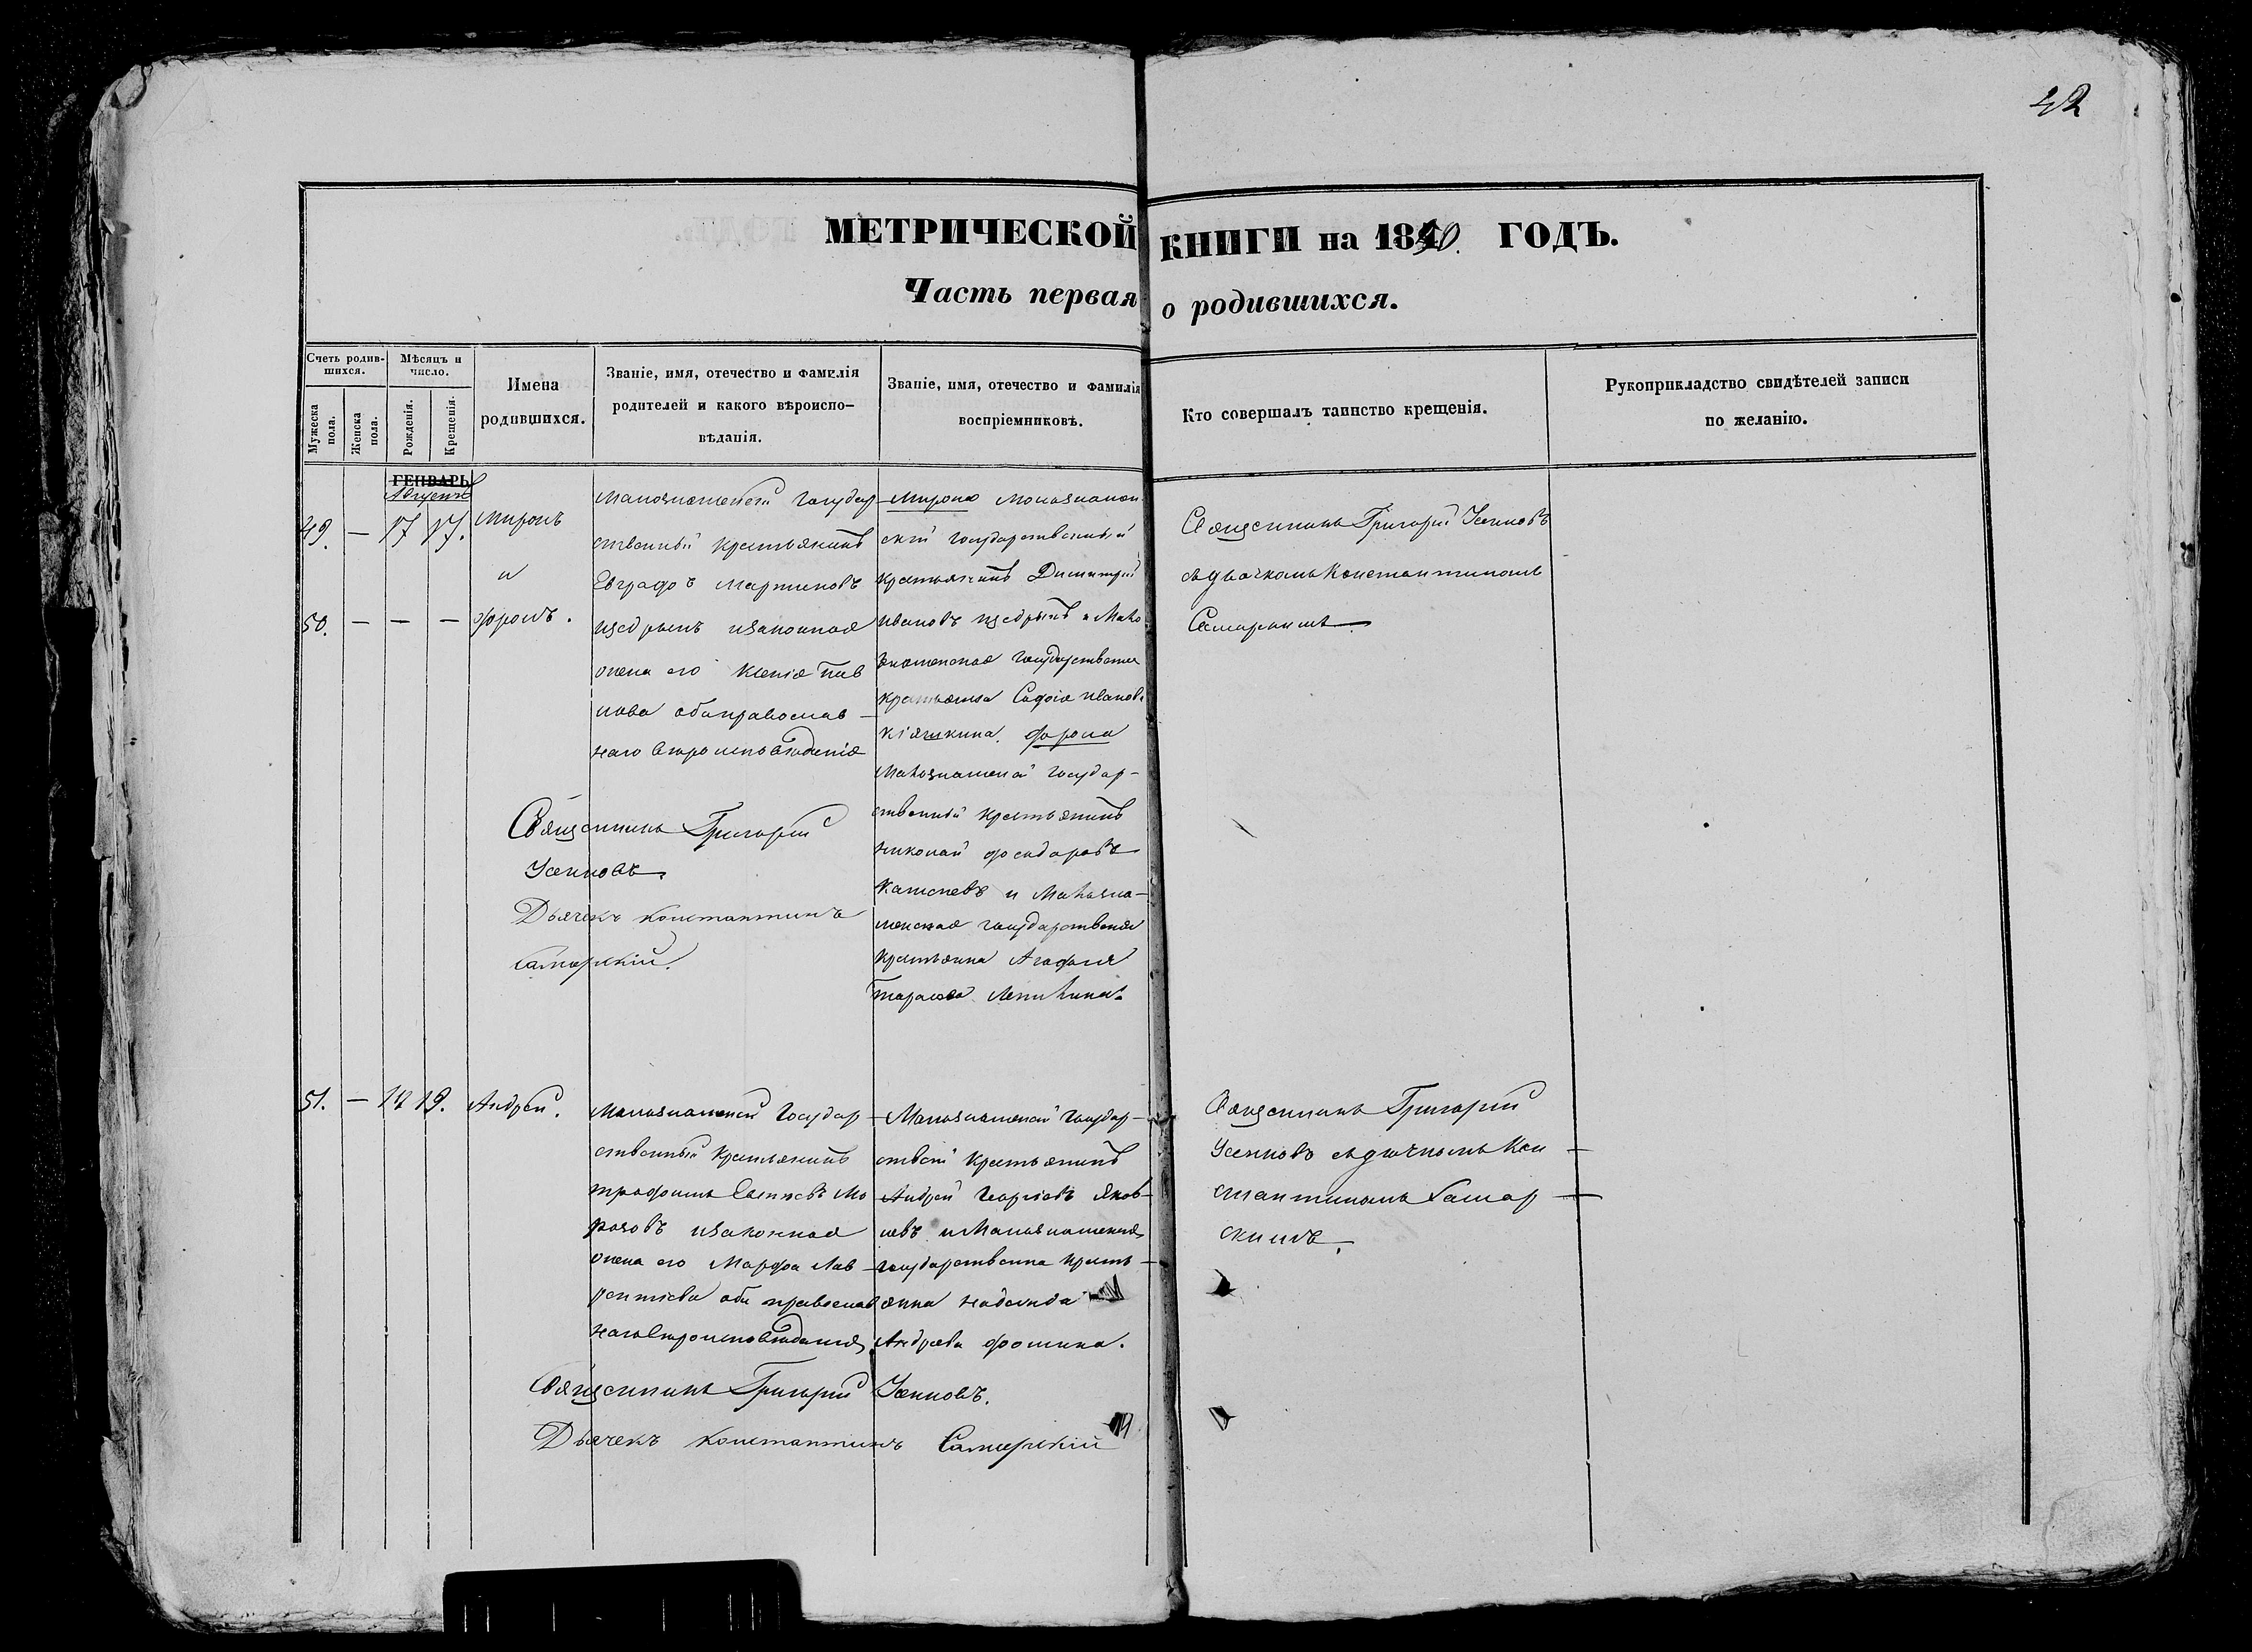 42
МЕТРИЧЕСКОЙ КНИГИ на 1850. ГОДЪ.
Часть первая о родившихся.
Счетъ родив-
шихся.
Мужеска пола.
Женска пола.
Мѣсяцъ и
число.
Рожденія.
Крещенія.
Имена
родившихся.
Званіе, имя, отечество и фамилія
родителей и какого вѣроиспо-
вѣданія.
Званіе, имя, отечество и фамилія
воспріемниковъ.
Кто совершалъ таинство крещенія.
Рукоприкладство свидѣтелей записи
по желанію.
ГЕНВАРЬ
Августъ
49. — 17 17. Миронъ
и
50. — — — Фролъ.
Малознаменской Государ-
ственный крестьянинъ
Евграфъ Мартиновъ
Щедринъ и законная
жена его Ксенія Пав
лова оба православ-
наго вѣроисповѣданія
Мирона Малознамен
ской государственный
крестьянинъ Димитрій
Ивановъ Щедринъ и Мало
знаменская государственная
крестьянка Софія Иванова
Кіяшкина. Фрола
Малознаменской государ-
ственный крестьянинъ
Николай Феодоровъ
и Малозна-
менская государственная
крестьянка Агафія
Тарасова
Священникъ Григорій
съ дьячкомъ Константиномъ
Самарскимъ.
Священникъ Григорій
Дьячекъ Константинъ
Самарскій.
51. — 19. Андрей.
Малознаменской Государ-
ственный крестьянинъ
Трофимъ Мо
розовъ и законная
жена его Марфа Лав-
рентіева оба православ
наго вѣроисповѣданія
Малознаменской государ-
ствен. крестьянинъ
Андрей Георгіевъ Яков-
левъ и Малознаменская
государственна кресть-
янка Надежда
Андреева Фомина.
Священникъ Григорій
съ дьячкомъ Кон-
стантиномъ Самар-
скимъ.
Священникъ Григорій
Дьячекъ Константинъ Самарскій